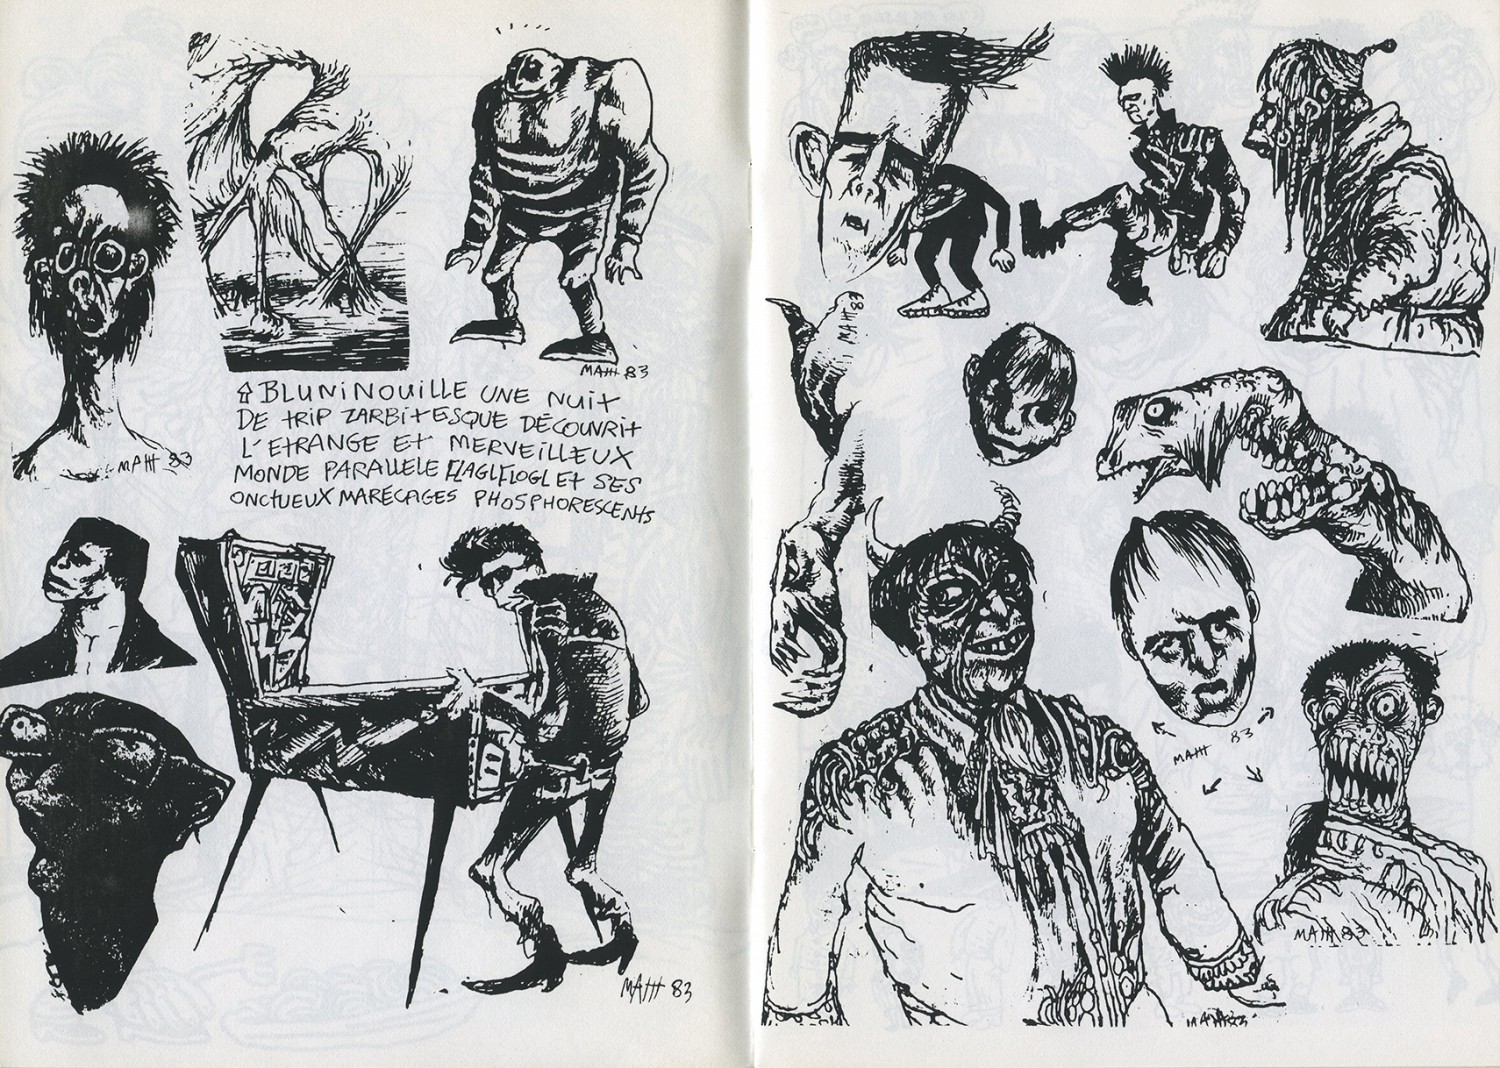 MATT 83
MATT 83
⇧ BLUNINOUILLE UNE NUIT
DE TRIP ZARBITESQUE DÉCOUVRIT
L'ETRANGE ET MERVEILLEUX
MONDE PARALLELE FLAGLFLOGL ET SES
ONCTUEUX MARÉCAGES PHOSPHORESCENTS
MATT 83
MATT 83
MATT 83
MATT 83
MATT 83